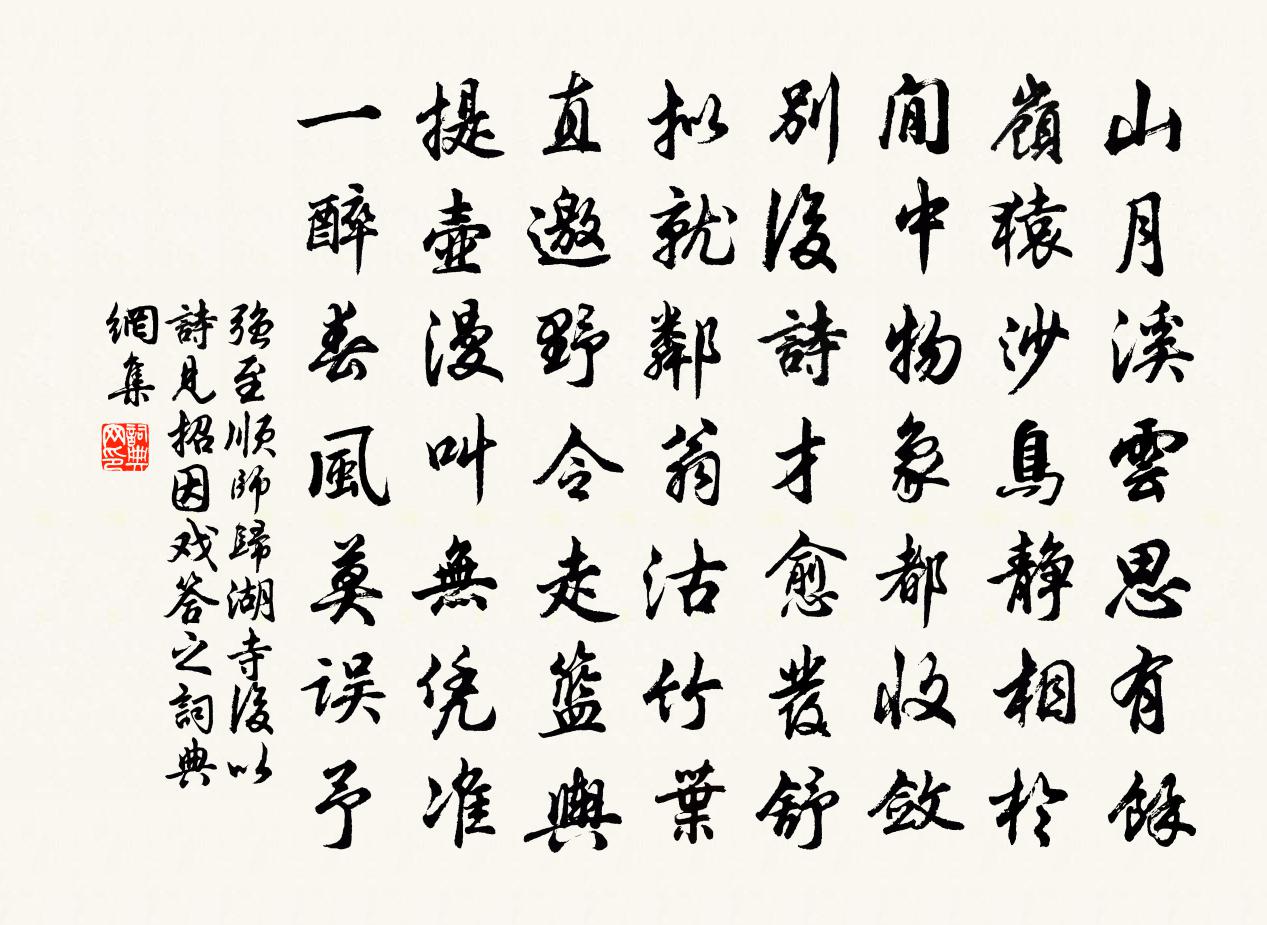 山月溪雲思有餘
嶺猿沙鳥靜相於
閒中物象都收斂
別後詩才愈發舒
拟就鄰翁沽竹葉
直邀野令走籃輿
提壺漫叫無凭准
一醉春風莫误予
强至順師歸湖寺後以
詩見招因戏答之詞典
網集
詞典網印